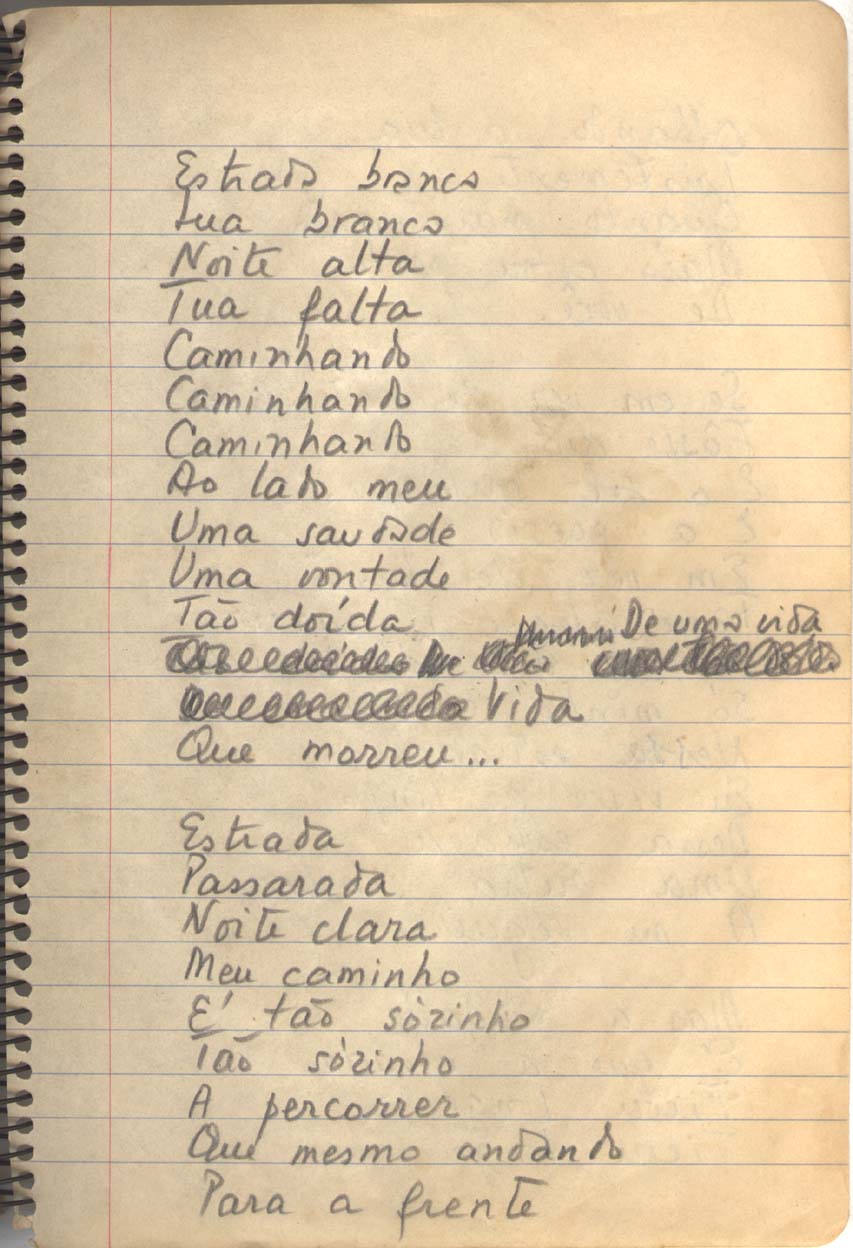 Estrada branca
Lua branca
Noite alta
Tua falta
Caminhando
Caminhando
Caminhando
Ao lado meu
Uma saudade
Uma vontade
Tão doída
De uma vida
Vida
Que morreu...
Estrada
Passarada
Noite clara
Meu caminho
É tão sòzinho
Tão sòzinho
A percorrer
Que mesmo andando
Para a frente